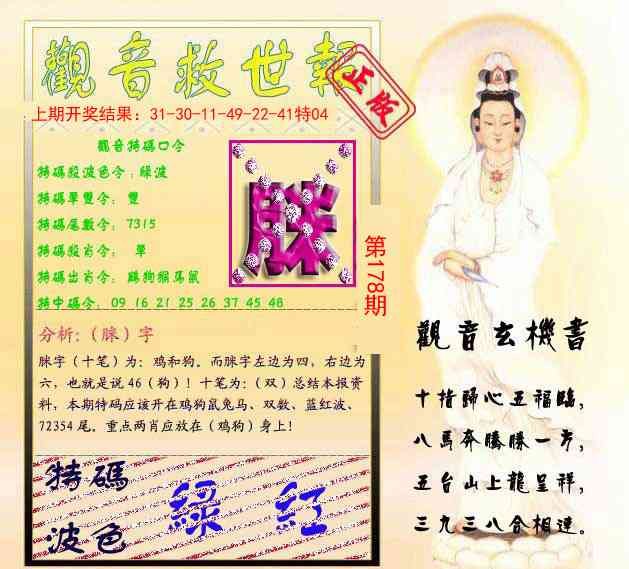 觀音救世報
正版
上期开奖结果：31-30-11-49-22-41特04
觀音特碼口令
特碼殺波色令：綠波
特碼單雙令：雙
特碼尾數令：7315
特碼殺肖令：單
特碼出肖令：雞狗猴馬鼠
特中碼令：09 16 21 25 26 37 45 48
脒
第178期
分析：（脒）字
脒字（十笔）为：鸡和狗。而脒字左边为四，右边为
六，也就是说46（狗）！十笔为：（双）总结本报资
料，本期特码应该开在鸡狗鼠兔马、双数、蓝红波、
72354尾。重点两肖应放在（鸡狗）身上！
特碼
波色
綠 紅
觀音玄機書
十指歸心五福臨，
八馬奔騰勝一方，
五台山上龍呈祥，
三九三八合相連。